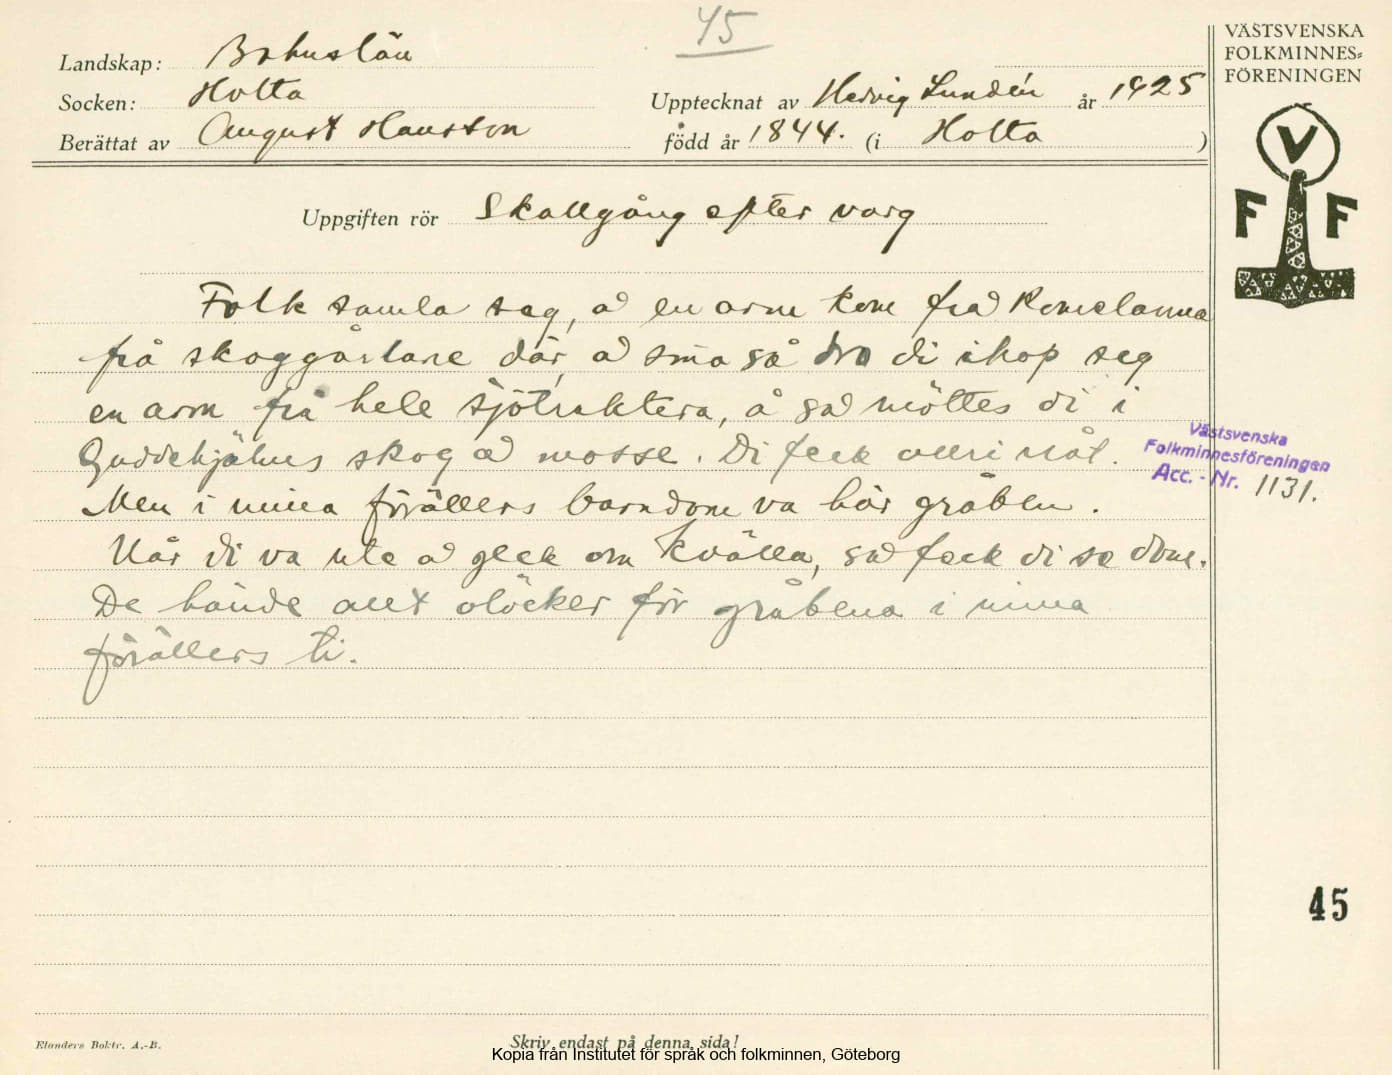 45
VÄSTSVENSKA
FOLKMINNES=
FÖRENINGEN
Landskap: Bohuslän
Socken: Holta
Upptecknat av Hedvig Lundén år 1925
Berättat av August Hansson
född år 1844. (i Holta)
V
F F
Uppgiften rör Skallgång efter varg
Folk samla sag, å en arm kom frå Romelanna
frå skoggårdane där, å sma så dro di ihop seg
en arm frå hele sjötraktera, å så möttes di i
skog å mosse. Di feck alri nåt.
Men i mina förällers barndom va här gråben.
Når di va ute å geck om kvälla, så feck di se dom.
De hände allt olöcker för gråbena i mina
förällers ti.
Västsvenska
Folkminnesföreningen
Acc. - Nr. 1131.
45
Elanders Boktr. A.-B.
Skriv endast på denna sida!
Kopia från Institutet för språk och folkminnen, Göteborg